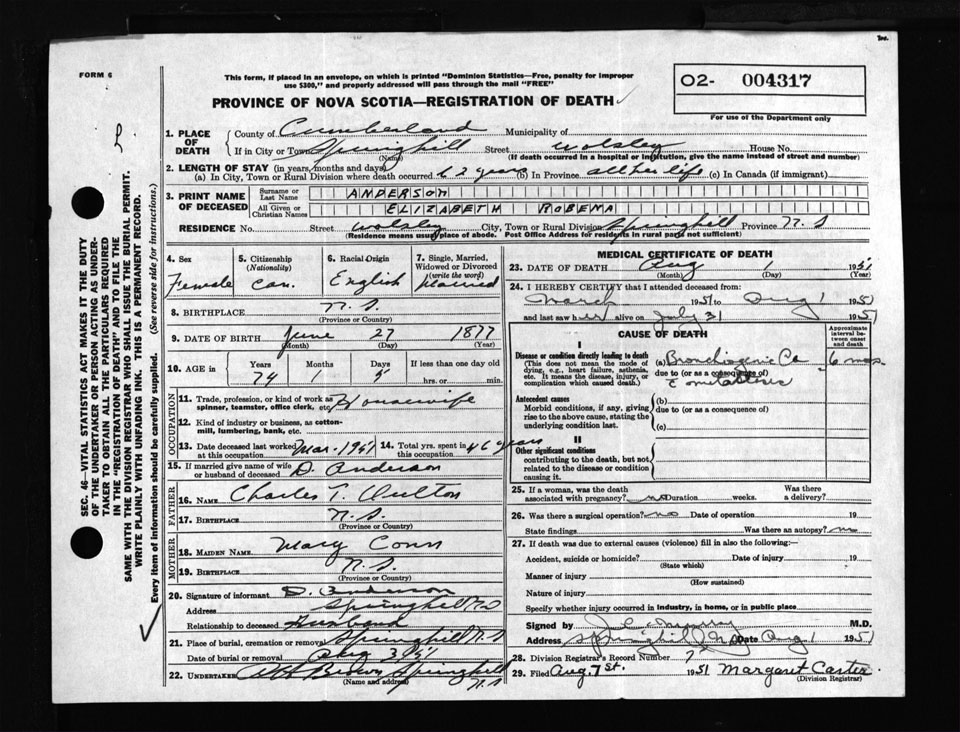 FORM 6
This form, if placed in an envelope, on which is printed "Dominion Statistics—Free, penalty for improper
use $300," and properly addressed will pass through the mail "FREE"
O2- 004317
For use of the Department only
PROVINCE OF NOVA SCOTIA—REGISTRATION OF DEATH
1. PLACE OF DEATH
County of Cumberland Municipality of
If in City or Town Springhill Street Wolsley House No.
(Name) (If death occurred in a hospital or institution, give the name instead of street and number)
2. LENGTH OF STAY (in years, months and days)
(a) In City, Town or Rural Division where death occurred 62 years (b) In Province all her life (c) In Canada (if immigrant)
3. PRINT NAME OF DECEASED
Surname or Last Name ANDERSON
All Given or Christian Names ELIZABETH ROBEMA
RESIDENCE No. Street Wolsley City, Town or Rural Division Springhill Province N.S
(Residence means usual place of abode. Post Office Address for residents in rural parts not sufficient)
4. Sex Female
5. Citizenship (Nationality) Can.
6. Racial Origin English
7. Single, Married, Widowed or Divorced (write the word) Married
8. BIRTHPLACE N.S
(Province or Country)
9. DATE OF BIRTH June 27 1877
(Month) (Day) (Year)
10. AGE in Years Months Days If less than one day old
74 1 5 hrs. or min.
OCCUPATION
11. Trade, profession, or kind of work as spinner, teamster, office clerk, etc. Housewife
12. Kind of industry or business, as cotton-mill, lumbering, bank, etc.
13. Date deceased last worked at this occupation Mar. 1951 14. Total yrs. spent in this occupation 46 years
15. If married give name of wife or husband of deceased D. Anderson
FATHER
16. NAME Charles T. Oulton
17. BIRTHPLACE N.S.
(Province or Country)
MOTHER
18. MAIDEN NAME Mary Conn
19. BIRTHPLACE N.S
(Province or Country)
20. Signature of informant D. Anderson
Address Springhill N.S
Relationship to deceased Husband
21. Place of burial, cremation or removal Springhill N.S
Date of burial or removal Aug 3 1951
22. UNDERTAKER Brown, Springhill N.S
(Name and address)
MEDICAL CERTIFICATE OF DEATH
23. DATE OF DEATH Aug 1 1951
(Month) (Day) (Year)
24. I HEREBY CERTIFY that I attended deceased from:
March 1951 to Aug 1 1951
and last saw her alive on July 31 1951
CAUSE OF DEATH
Approximate interval between onset and death
I
Disease or condition directly leading to death
(This does not mean the mode of dying, e.g., heart failure, asthenia, etc. It means the disease, injury, or complication which caused death.)
(a) Bronchiogenic Ca 6 mos
due to (or as a consequence of)
metastasis
Antecedent causes
Morbid conditions, if any, giving rise to the above cause, stating the underlying condition last.
(b)
due to (or as a consequence of)
(c)
II
Other significant conditions
contributing to the death, but not related to the disease or condition causing it.
25. If a woman, was the death associated with pregnancy? no Duration weeks. Was there a delivery?
26. Was there a surgical operation? no Date of operation 19
State findings Was there an autopsy? no
27. If death was due to external causes (violence) fill in also the following:—
Accident, suicide or homicide? Date of injury 19
(State which)
Manner of injury
(How sustained)
Nature of injury
Specify whether injury occurred in industry, in home, or in public place
Signed by Murray M.D.
Address Springhill, N.S Date Aug. 1 1951
28. Division Registrar's Record Number 72
29. Filed Aug. 7 st. 1951 Margaret Carter.
(Division Registrar)
SEC. 46—VITAL STATISTICS ACT MAKES IT THE DUTY
OF THE UNDERTAKER OR PERSON ACTING AS UNDER-
TAKER TO OBTAIN ALL THE PARTICULARS REQUIRED
IN THE "REGISTRATION OF DEATH" AND TO FILE THE
SAME WITH THE DIVISION REGISTRAR WHO SHALL ISSUE THE BURIAL PERMIT.
WRITE PLAINLY WITH UNFADING INK. THIS IS A PERMANENT RECORD.
Every item of information should be carefully supplied. (See reverse side for instructions.)